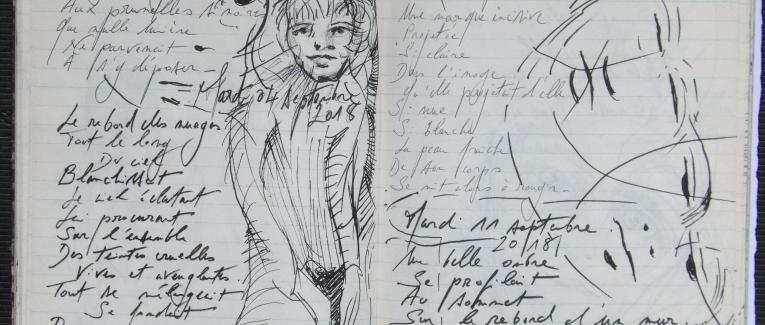 Aux prunelles si noires
Que nulle lumière
Ne parvenait
À s'y déposer –
= Mardi 04 Septembre
2018
Le rebord des nuages
Tout le long
Du ciel
Blanchissait
Le ciel éclatant
Lui procurant
Sur l'ensemble
Des teintes cruelles
Vives et aveuglantes.
Tout se mélangeait
Se fondait
Une marque incisive
Projetée
Si claire
Dans l'image
qu'elle projetait d'elle
Si nue
Si blanche
La peau fraîche
De son corps
Se mit alors à rougir –
Mardi 11 Septembre
2018
Une belle ombre
Se profilait
Au sommet
Sur le rebord d'un mur